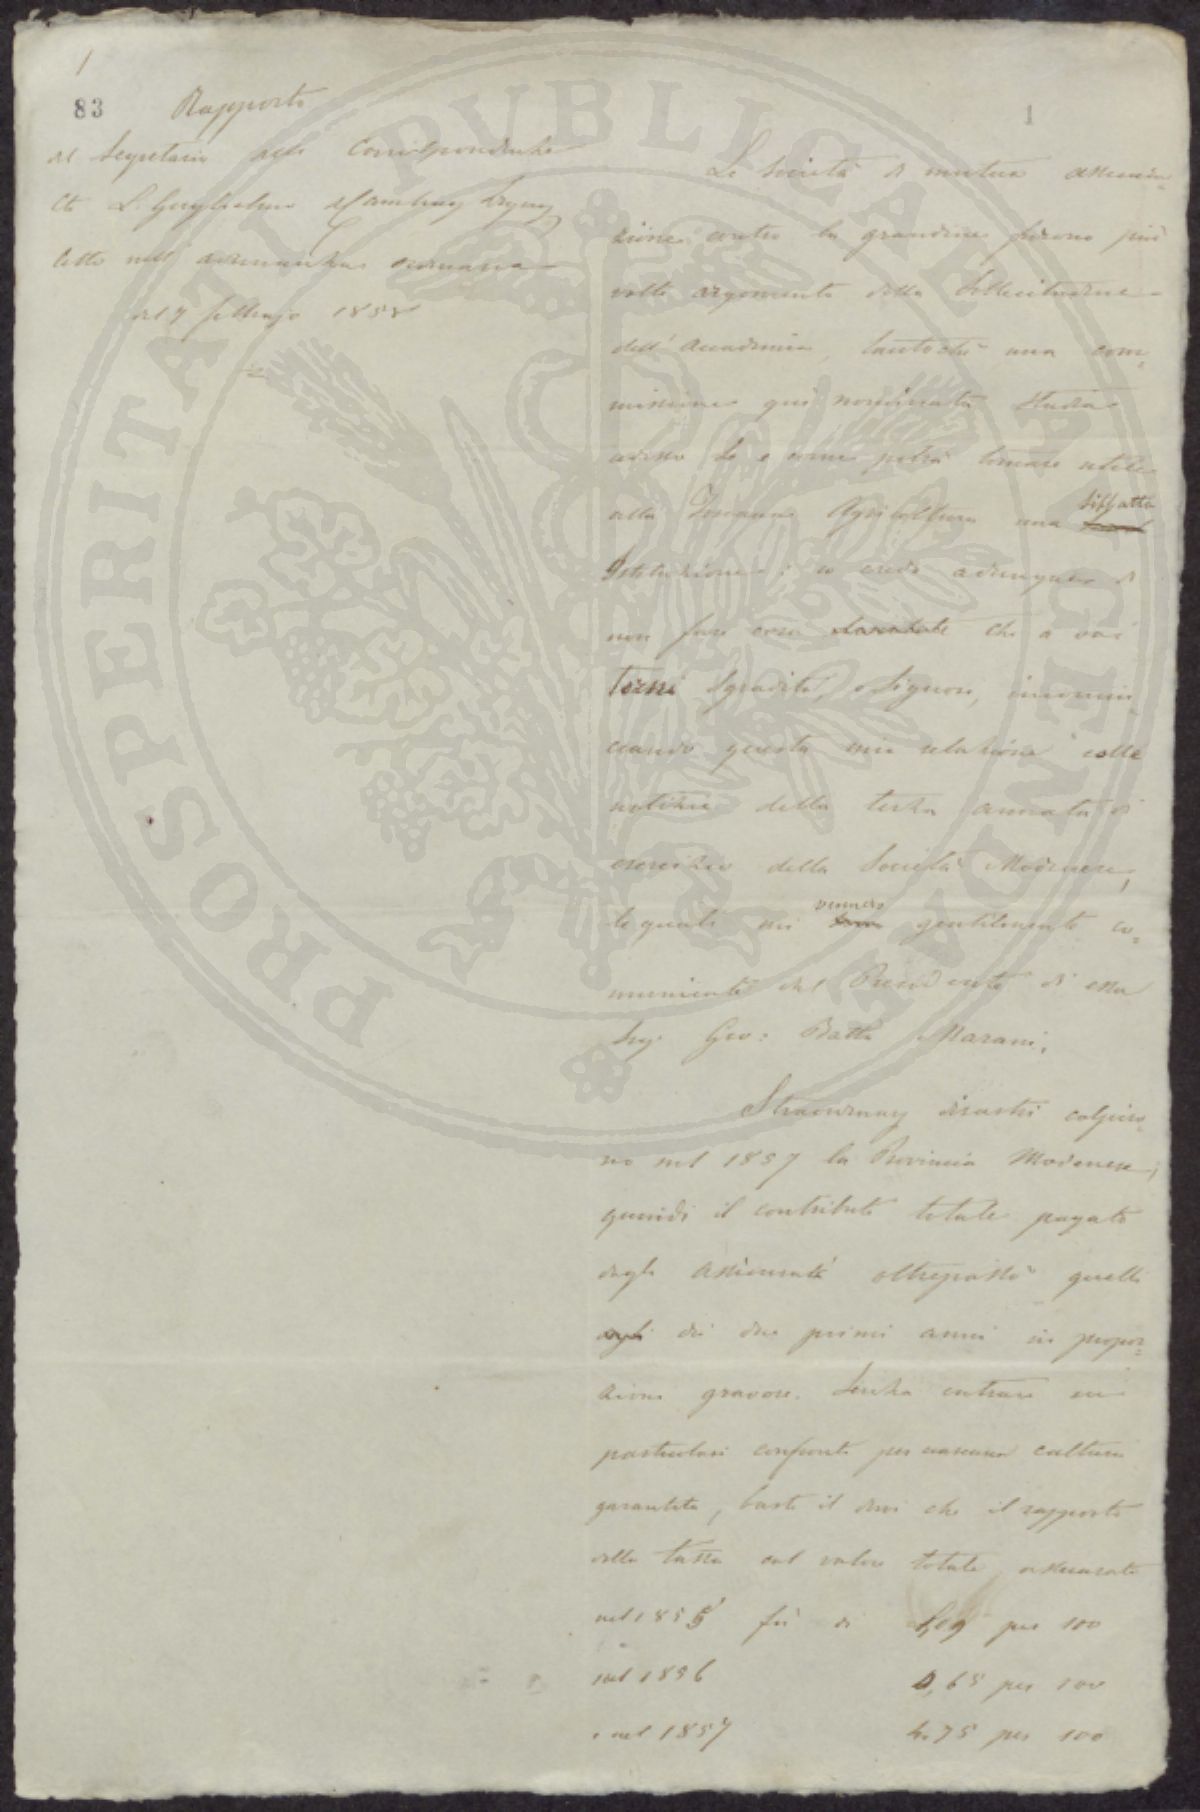 1
83
Rapporto
del Segretario delle Corrispondenze
Cte L. Guglielmo de Cambray Digny
letto nell' adunanza ordinaria
del 7 febbrajo 1858
1
Le Società di mutua assicura-
zione contro la grandine furono più
volte argomento della sollecitudine
dell' Accademia, tantochè una com-
missione quì nominata studia
adesso se e come potrà tornare utile
alla Toscana Agricoltura una siffatta
Istituzione: io credo adunque di
non fare cosa che a voi
torni sgradita, o Signori, incomin-
ciando questa mia relazione colle
notizie della terza annata di
esercizio della Società Modenese,
le quali mi vennero gentilmente co-
municate dal Presidente di essa
Sig. Gio: Batta Marani.
Straordinarj disastri colpiro-
no nel 1857 la Provincia Modenese,
quindi il contributo totale pagato
dagli assicurati oltrepassò quelli
dei due primi anni in propor-
zione gravose. Senza entrare in
particolari confronti per ciascuna cultura
garantita, basti il dirvi che il rapporto
della tassa col valore totale assicurato
nel 1855 fù di per 100
nel 1856 0,65 per 100
e nel 1857 4.75 per 100
PROSPERITATI PUBLICAE AUGENDAE